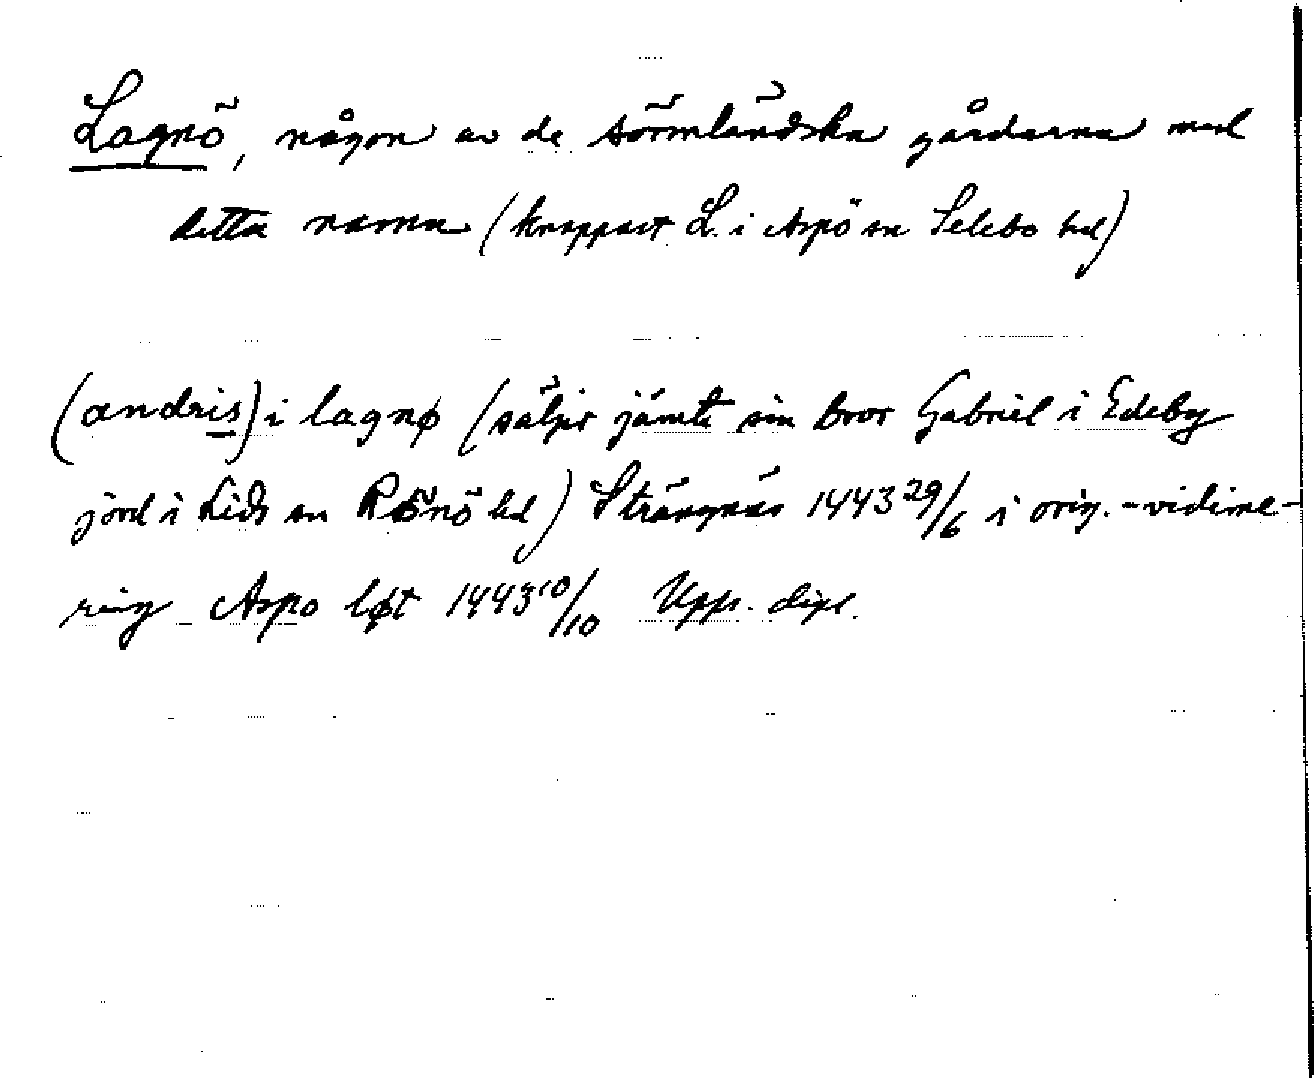 Lagnö, någon av de sörmländska gårdarna med
detta namn (knappast L. i Aspö sn Selebo hd)
(andris) i lagnø (säljer jämte sin bror Gabriel i Edeby
jord i Lids sn Rönö hd) Strängnäs 1443 29/6 i orig.-vidime-
ring Aspo løt 1443 10/10 Upps. dipl.